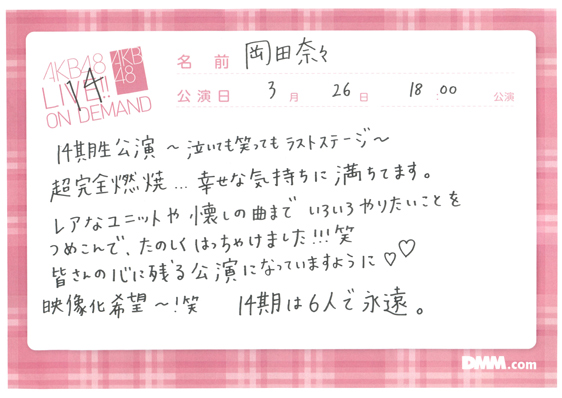 AKB48
LIVE!!
ON DEMAND
AKB
48
14
名前 岡田奈々
公演日 3月 26日 18:00 公演
14期生公演 ~泣いても笑ってもラストステージ~
超完全燃焼…幸せな気持ちに満ちてます。
レアなユニットや懐しの曲までいろいろやりたいことを
つめこんで、たのしくはっちゃけました!!!笑
皆さんの心に残る公演になっていますように♡♡
映像化希望~!笑 14期は6人で永遠。
DMM.com